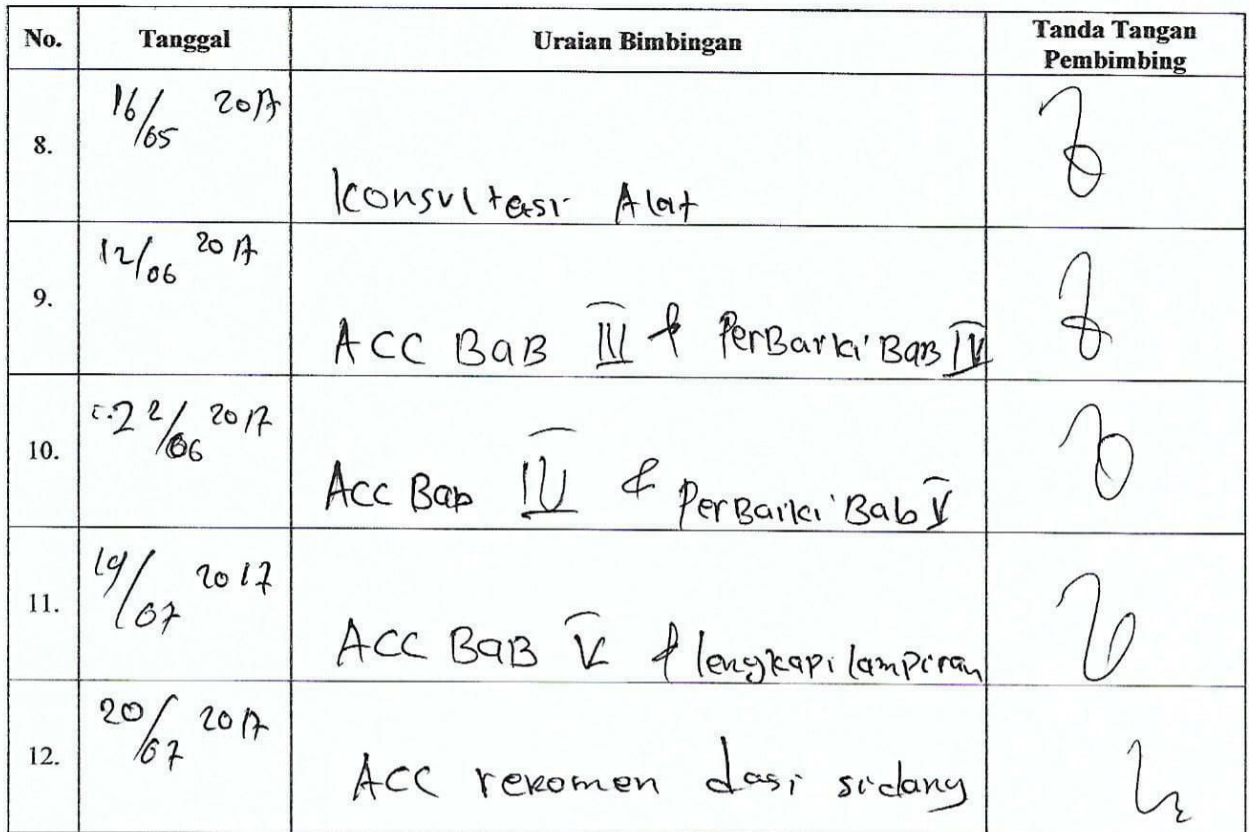 No. Tanggal Uraian Bimbingan Tanda Tangan Pembimbing
8. 16/05 2017 Konsultasi Alat
9. 12/06 2017 ACC BaB III & PerBaiki Bab IV
10. 22/06 2017 Acc Bab IV & PerBaiki Bab V
11. 19/07 2017 ACC BaB V & lengkapi lampiran
12. 20/07 2017 ACC rekomen dasi sidang